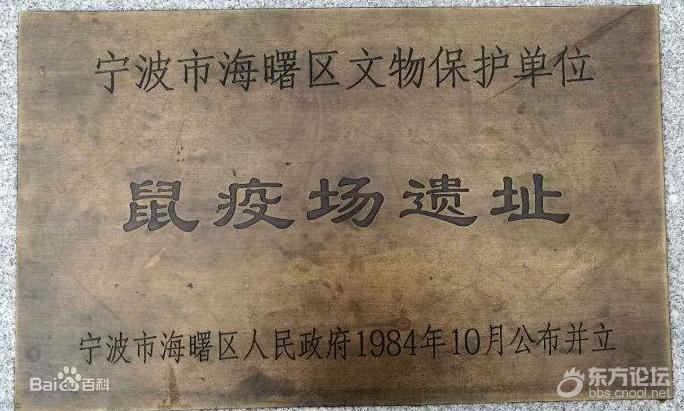 宁波市海曙区文物保护单位
鼠疫场遗址
宁波市海曙区人民政府1984年10月公布并立
Bai百科
东方论坛
bbs.cnool.net